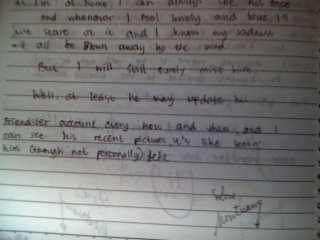 as I'm at home, I can always see his face
and whenever I feel lonely and blue, I'll
just stare at it and I know my sadness
will all be blown away by the wind
But I will still surely miss him
Well, at least he may update his
Friendster account every now and then, and I
can see his recent pictures, it's like seein'
him (though not personally)